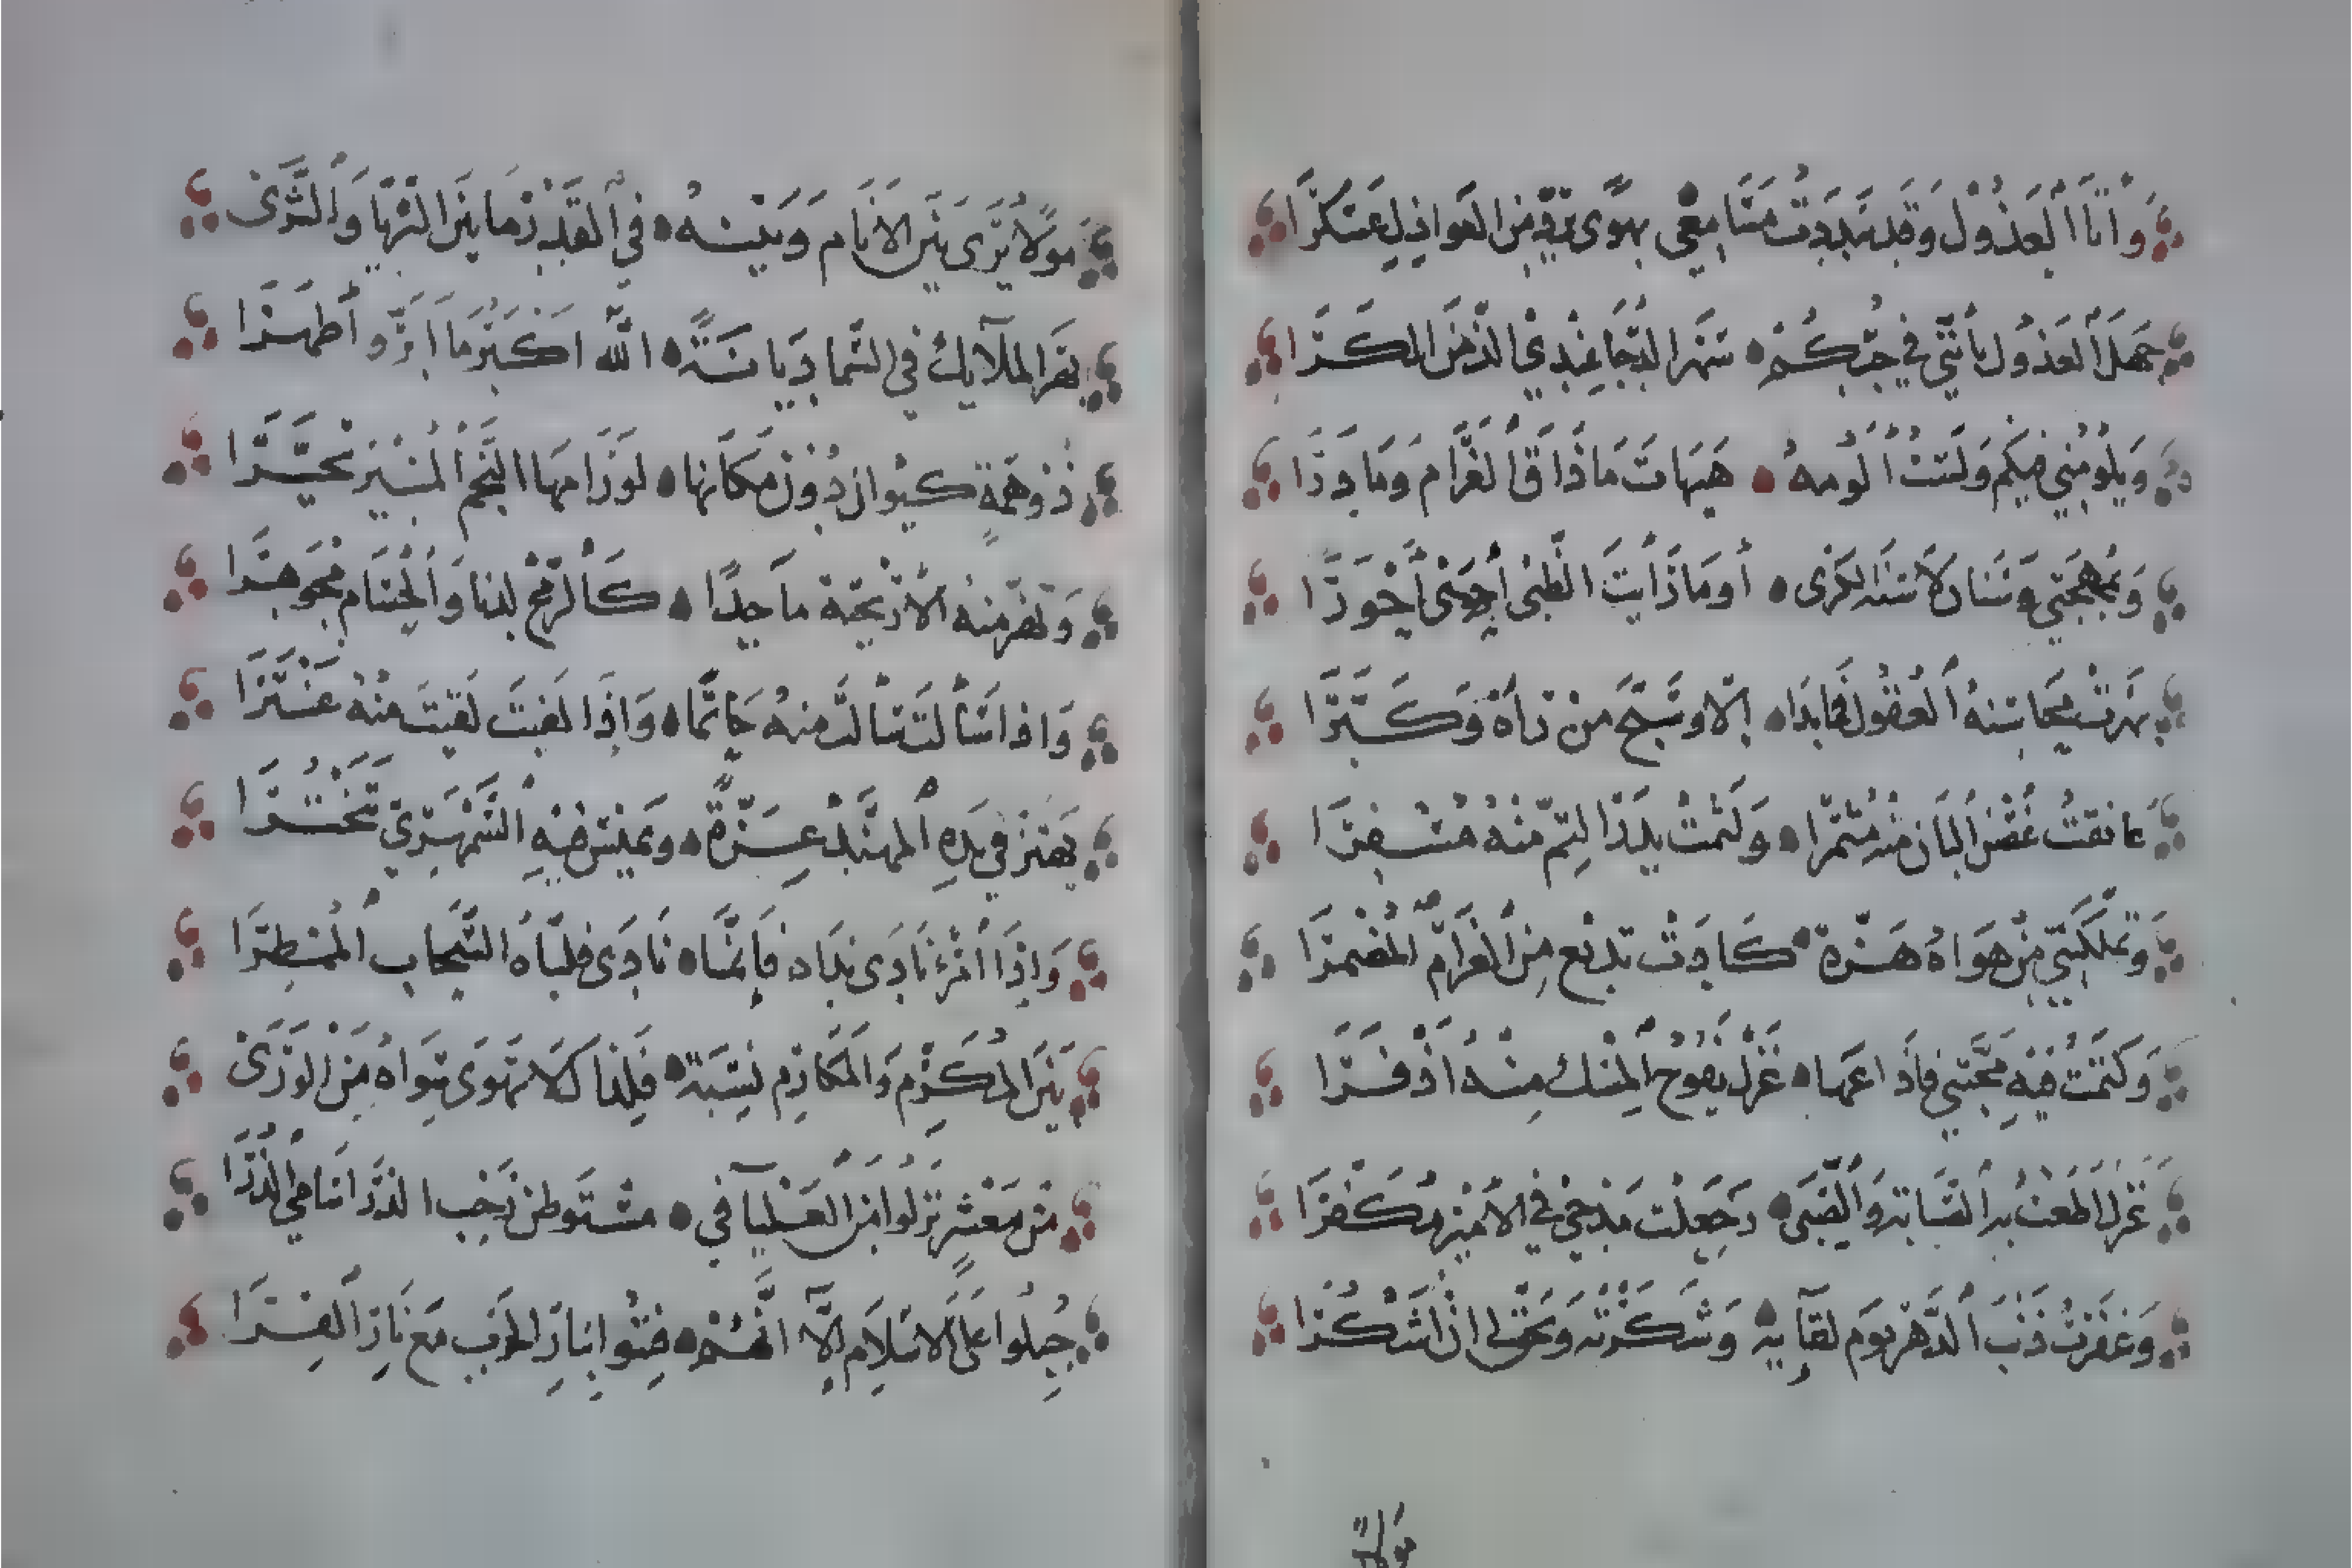 وَأَنَا الْعَذُول وَقَد تَبَدَدَتْ مَسَامِعِي بِهَوًى يَرُدُّ مِنَ العَوَاذِلِ عَسْكَرَا
جَهِلَ الْعَذُول بِأَنَّنِي فِي حُبِّكُمْ سَهَرَ الدُّجَا عِنْدِي أَلَذُّ مِنَ الْكَرَا
وَيَلُومُنِي فِيكُم وَلَسْتُ أَلُومُهُ هَيْهَاتَ مَا ذَاقَ الْغَرَام وَمَا دَرَا
وَبِمُهْجَتِي وَسْنَان لَا سِنَة الكَرَى أَو مَا رَأَيتَ الظَّبْيَ أَحْوَى أَحْوَرَا
بَهَرَتْ مَحَاسِنُهُ الْعُقُول فَمَا بَدَا إلّا وَسَبَّحَ مَنْ رَآهُ وَكَبَّرَا
عَانَقتُ غُصْنَ الْبَان مِنْهُ مُثْمِرًا وَلَثَمْتُ بَدرَ التِّمِّ مِنْهُ مُسْفِرَا
وَتَمَلَّكَتْنِي مِنْ هَوَاهُ هَزَّة كَادَتْ تذيع مِنَ الْغَرَامِ الْمُضْمَرَا
وَكَتَمْتُ فِيهِ مَحَبَّتِي فَأَذَاعَهَا غَزَل يَفُوحُ الْمِسْك مِنْهُ أَذْفَرَا
غَزَل أَطَعْتُ بِهِ الصَّبَابَة وَالصِّبَى وَجَعَلْتُ مَدْحِي فِي الْأَمِيرِ مُكَفِّرَا
وَغَفَرْتُ ذَنْبَ الدَّهْر يَوْم لقَآئِهِ وَشَكَرْتُه وَيَحِقّ لِي أَنْ أَشْكُرَا
مَولًى
مَولًا يُرَى بَيْنَ الأَنَام وَبَيْنَهُ فِي الْقَدْرِ مَا بَيْنَ الثُّرَيَّا وَالثَّرَى
بَهَرَ المَلَآئِك فِي السَّمَا دِيَانَةً اللَّه أَكْبَرُ مَا أَبَرّ وَأَطْهَرَا
ذُو هِمَّةٍ كَيْوَان دُوْنَ مَكَانِهَا لَوْ رَامَهَا النَّجْمُ الْمُنِيرُ تَحَيَّرَا
وَتَهُز مِنْهُ الأَرْيَحِيَّة مَاجِدًا كَالرُّمْحِ لدنا وَالْحُسَام مُجَوهَرَا
وَإذا سَأَلتَ سَأَلتَ مِنهُ حَاتَمًا وَإِذَا لَقِيتَ لَقِيتَ مِنْهُ عَنْتَرَا
يَهْتَزُّ فِي يَدِهِ الْمُهَنَّدُ عِزَّةً وَيَمِيْسُ فِيْهِ السَّمْهَرِيّ تَبَخْتُرَا
وَإِذَا امْرُؤ نَادَى نَدَاه فَإِنَّمَا نَادَى فَلَبَّاهُ السَّحَاب الْمُمْطِرَا
بَيْنَ المُكَرَّم وَالمَكَارِمِ نِسْبَةٌ فَلِذَاكَ لَا تَهْوَى سِوَاهُ مِنَ الوَرَى
مِنْ مَعْشَرٍ نَزَلُوا مِنَ الْعَلْيَآءِ فِي مُسْتَوطَن رَحْب الذَّرَا سَامِي الذُّرَا
جُبِلُوا عَلَى الْإسْلَام إِلَّا أَنَّهُمْ فُتِنُوا بِنَارِ الحَرْبِ مَع نَارِ الْقِرَا